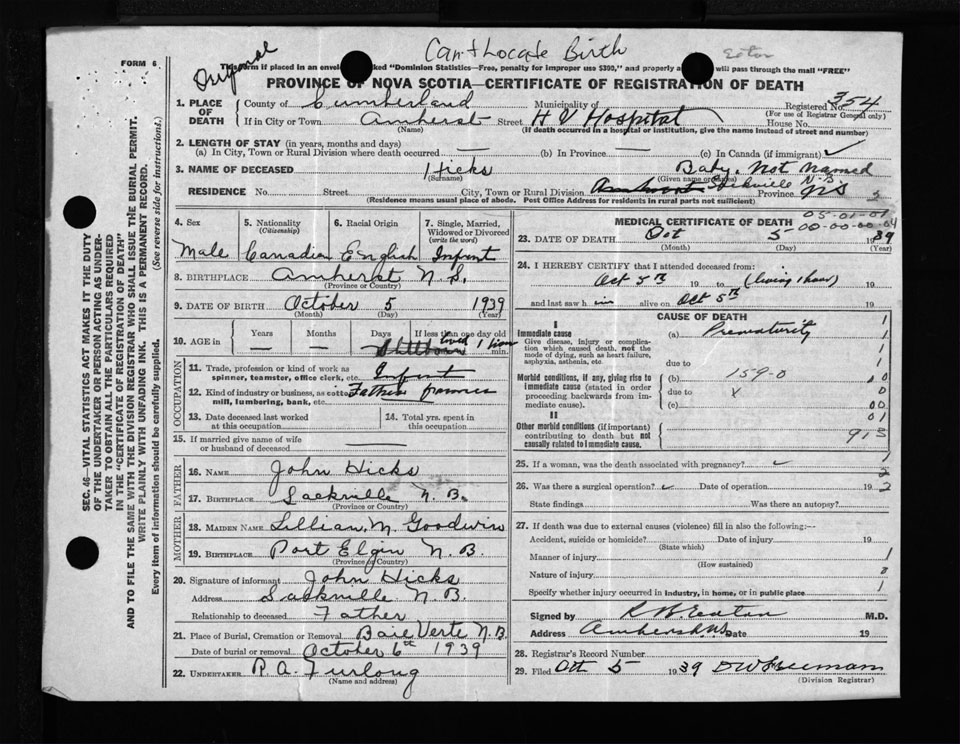 FORM 6
Original
Can't Locate Birth
Eaton
This form if placed in an envelope marked "Dominion Statistics—Free, penalty for improper use $300," and properly a will pass through the mail "FREE"
PROVINCE OF NOVA SCOTIA—CERTIFICATE OF REGISTRATION OF DEATH
1. PLACE OF DEATH
County of Cumberland Municipality of Registered No. 354
(For use of Registrar General only)
If in City or Town Amherst Street H V Hospital House No.
(Name) (If death occurred in a hospital or institution, give the name instead of street and number)
2. LENGTH OF STAY (in years, months and days)
(a) In City, Town or Rural Division where death occurred — (b) In Province — (c) In Canada (if immigrant) ✓
3. NAME OF DECEASED Hicks Baby, Not Named
(Surname) (Given name or names)
RESIDENCE No. Street City, Town or Rural Division Sackville N.B. Province
(Residence means usual place of abode. Post Office Address for residents in rural parts not sufficient)
4. Sex 5. Nationality (Citizenship) 6. Racial Origin 7. Single, Married, Widowed or Divorced (write the word)
Male Canadian English Infant
8. BIRTHPLACE Amherst N.S.
(Province or Country)
9. DATE OF BIRTH October 5 1939
(Month) (Day) (Year)
10. AGE in Years Months Days If less than one day old
— — Stillborn lived 1 hour min.
OCCUPATION
11. Trade, profession or kind of work as spinner, teamster, office clerk, etc. Infant
12. Kind of industry or business, as cotton mill, lumbering, bank, etc. Father
13. Date deceased last worked at this occupation
14. Total yrs. spent in this occupation
15. If married give name of wife or husband of deceased —
FATHER
16. NAME John Hicks
17. BIRTHPLACE Sackville N.B.
(Province or Country)
MOTHER
18. MAIDEN NAME Lillian M. Goodwin
19. BIRTHPLACE Port Elgin N.B.
(Province or Country)
20. Signature of informant John Hicks
Address Sackville N.B.
Relationship to deceased Father
21. Place of Burial, Cremation or Removal Baie Verte N.B.
Date of burial or removal October 6th 1939
22. UNDERTAKER R.A. Furlong
(Name and address)
MEDICAL CERTIFICATE OF DEATH
05-01-01
00-00-00-04
23. DATE OF DEATH Oct 5 1939
(Month) (Day) (Year)
24. I HEREBY CERTIFY that I attended deceased from:
Oct 5th 19 to (living 1 hour) 19
and last saw him alive on Oct 5th 19
CAUSE OF DEATH
I
Immediate cause (a) Prematurity
Give disease, injury or complication which caused death, not the mode of dying, such as heart failure, asphyxia, asthenia, etc.
due to
Morbid conditions, if any, giving rise to immediate cause (stated in order proceeding backwards from immediate cause).
(b) 159-0
due to X
(c)
II
Other morbid conditions (if important) contributing to death but not causally related to immediate cause.
913
25. If a woman, was the death associated with pregnancy?
26. Was there a surgical operation? Date of operation 19
State findings Was there an autopsy?
27. If death was due to external causes (violence) fill in also the following:—
Accident, suicide or homicide? Date of injury 19
(State which)
Manner of injury
(How sustained)
Nature of injury
Specify whether injury occurred in industry, in home, or in public place
Signed by R W Eaton M.D.
Address Amherst NS Date 19
28. Registrar's Record Number
29. Filed Oct 5 1939 D W Freeman
(Division Registrar)
SEC. 46—VITAL STATISTICS ACT MAKES IT THE DUTY
OF THE UNDERTAKER OR PERSON ACTING AS UNDER-
TAKER TO OBTAIN ALL THE PARTICULARS REQUIRED
IN THE "CERTIFICATE OF REGISTRATION OF DEATH"
AND TO FILE THE SAME WITH THE DIVISION REGISTRAR WHO SHALL ISSUE THE BURIAL PERMIT.
WRITE PLAINLY WITH UNFADING INK. THIS IS A PERMANENT RECORD.
Every item of information should be carefully supplied. (See reverse side for instructions).